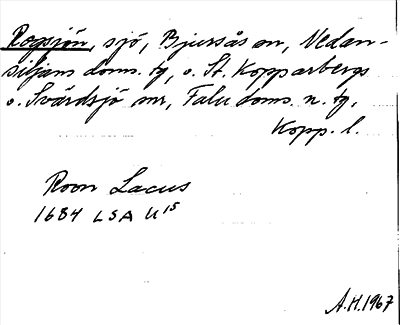 Rogsjön, sjö, Bjursås sn, Nedan-
siljans doms. tg, o. St. Kopparbergs
o. Svärdsjö snr, Falu doms. n. tg,
Kopp. l.
Roon Lacus
1684 LSA U15
A.H. 1967